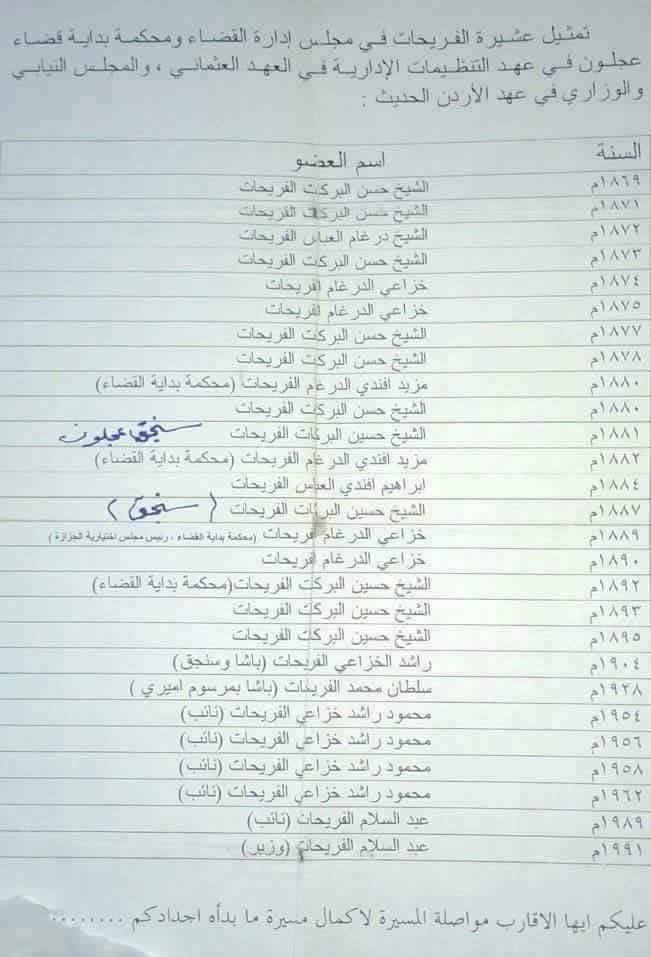 تمثيل عشيرة الفريحات في مجلس إدارة القضاء ومحكمة بداية قضاء
عجلون في عهد التنظيمات الإدارية في العهد العثماني ، والمجلس النيابي
والوزاري في عهد الأردن الحديث :
السنة اسم العضو
١٨٦٩م الشيخ حسن البركت الفريحات
١٨٧١م الشيخ حسن البركت الفريحات
١٨٧٢م الشيخ درغام العباس الفريحات
١٨٧٣م الشيخ حسن البركت الفريحات
١٨٧٤م خزاعي الدرغام لفريحات
١٨٧٥م خزاعي الدرغام لفريحات
١٨٧٧م الشيخ حسن البركت الفريحات
١٨٧٨م الشيخ حسن البركت الفريحات
١٨٨٠م مزيد افندي الدرغام الفريحات (محكمة بداية القضاء)
١٨٨٠م الشيخ حسن البركت الفريحات
١٨٨١م الشيخ حسين البركات الفريحات سنجق عجلون
١٨٨٢م مزيد افندي الدرغام الفريحات (محكمة بداية القضاء)
١٨٨٤م ابراهيم افندي العباس الفريحات
١٨٨٧م الشيخ حسين البركات الفريحات (سنجق)
١٨٨٩م خزاعي الدرغام فريحات (محكمة بداية القضاء ، رئيس مجلس اختيارية الجزازة)
١٨٩٠م خزاعي الدرغام لفريحات
١٨٩٢م الشيخ حسين البركت الفريحات(محكمة بداية القضاء)
١٨٩٣م الشيخ حسين البركت الفريحات
١٨٩٥م الشيخ حسين البركت الفريحات
١٩٠٤م راشد الخزاعي الفريحات (باشا وسنجق)
١٩٢٨م سلطان محمد الفريحات (باشا بمرسوم اميري )
١٩٥٤م محمود راشد خزاعي الفريحات (نائب)
١٩٥٦م محمود راشد خزاعي الفريحات (نائب)
١٩٥٨م محمود راشد خزاعي الفريحات (نائب)
١٩٦٢م محمود راشد خزاعي الفريحات (نائب)
١٩٨٩م عبد السلام الفريحات (نائب)
١٩٩١م عبد السلام الفريحات (وزير)
عليكم ايها الاقارب مواصلة المسيرة لاكمال مسيرة ما بدأه اجدادكم ........